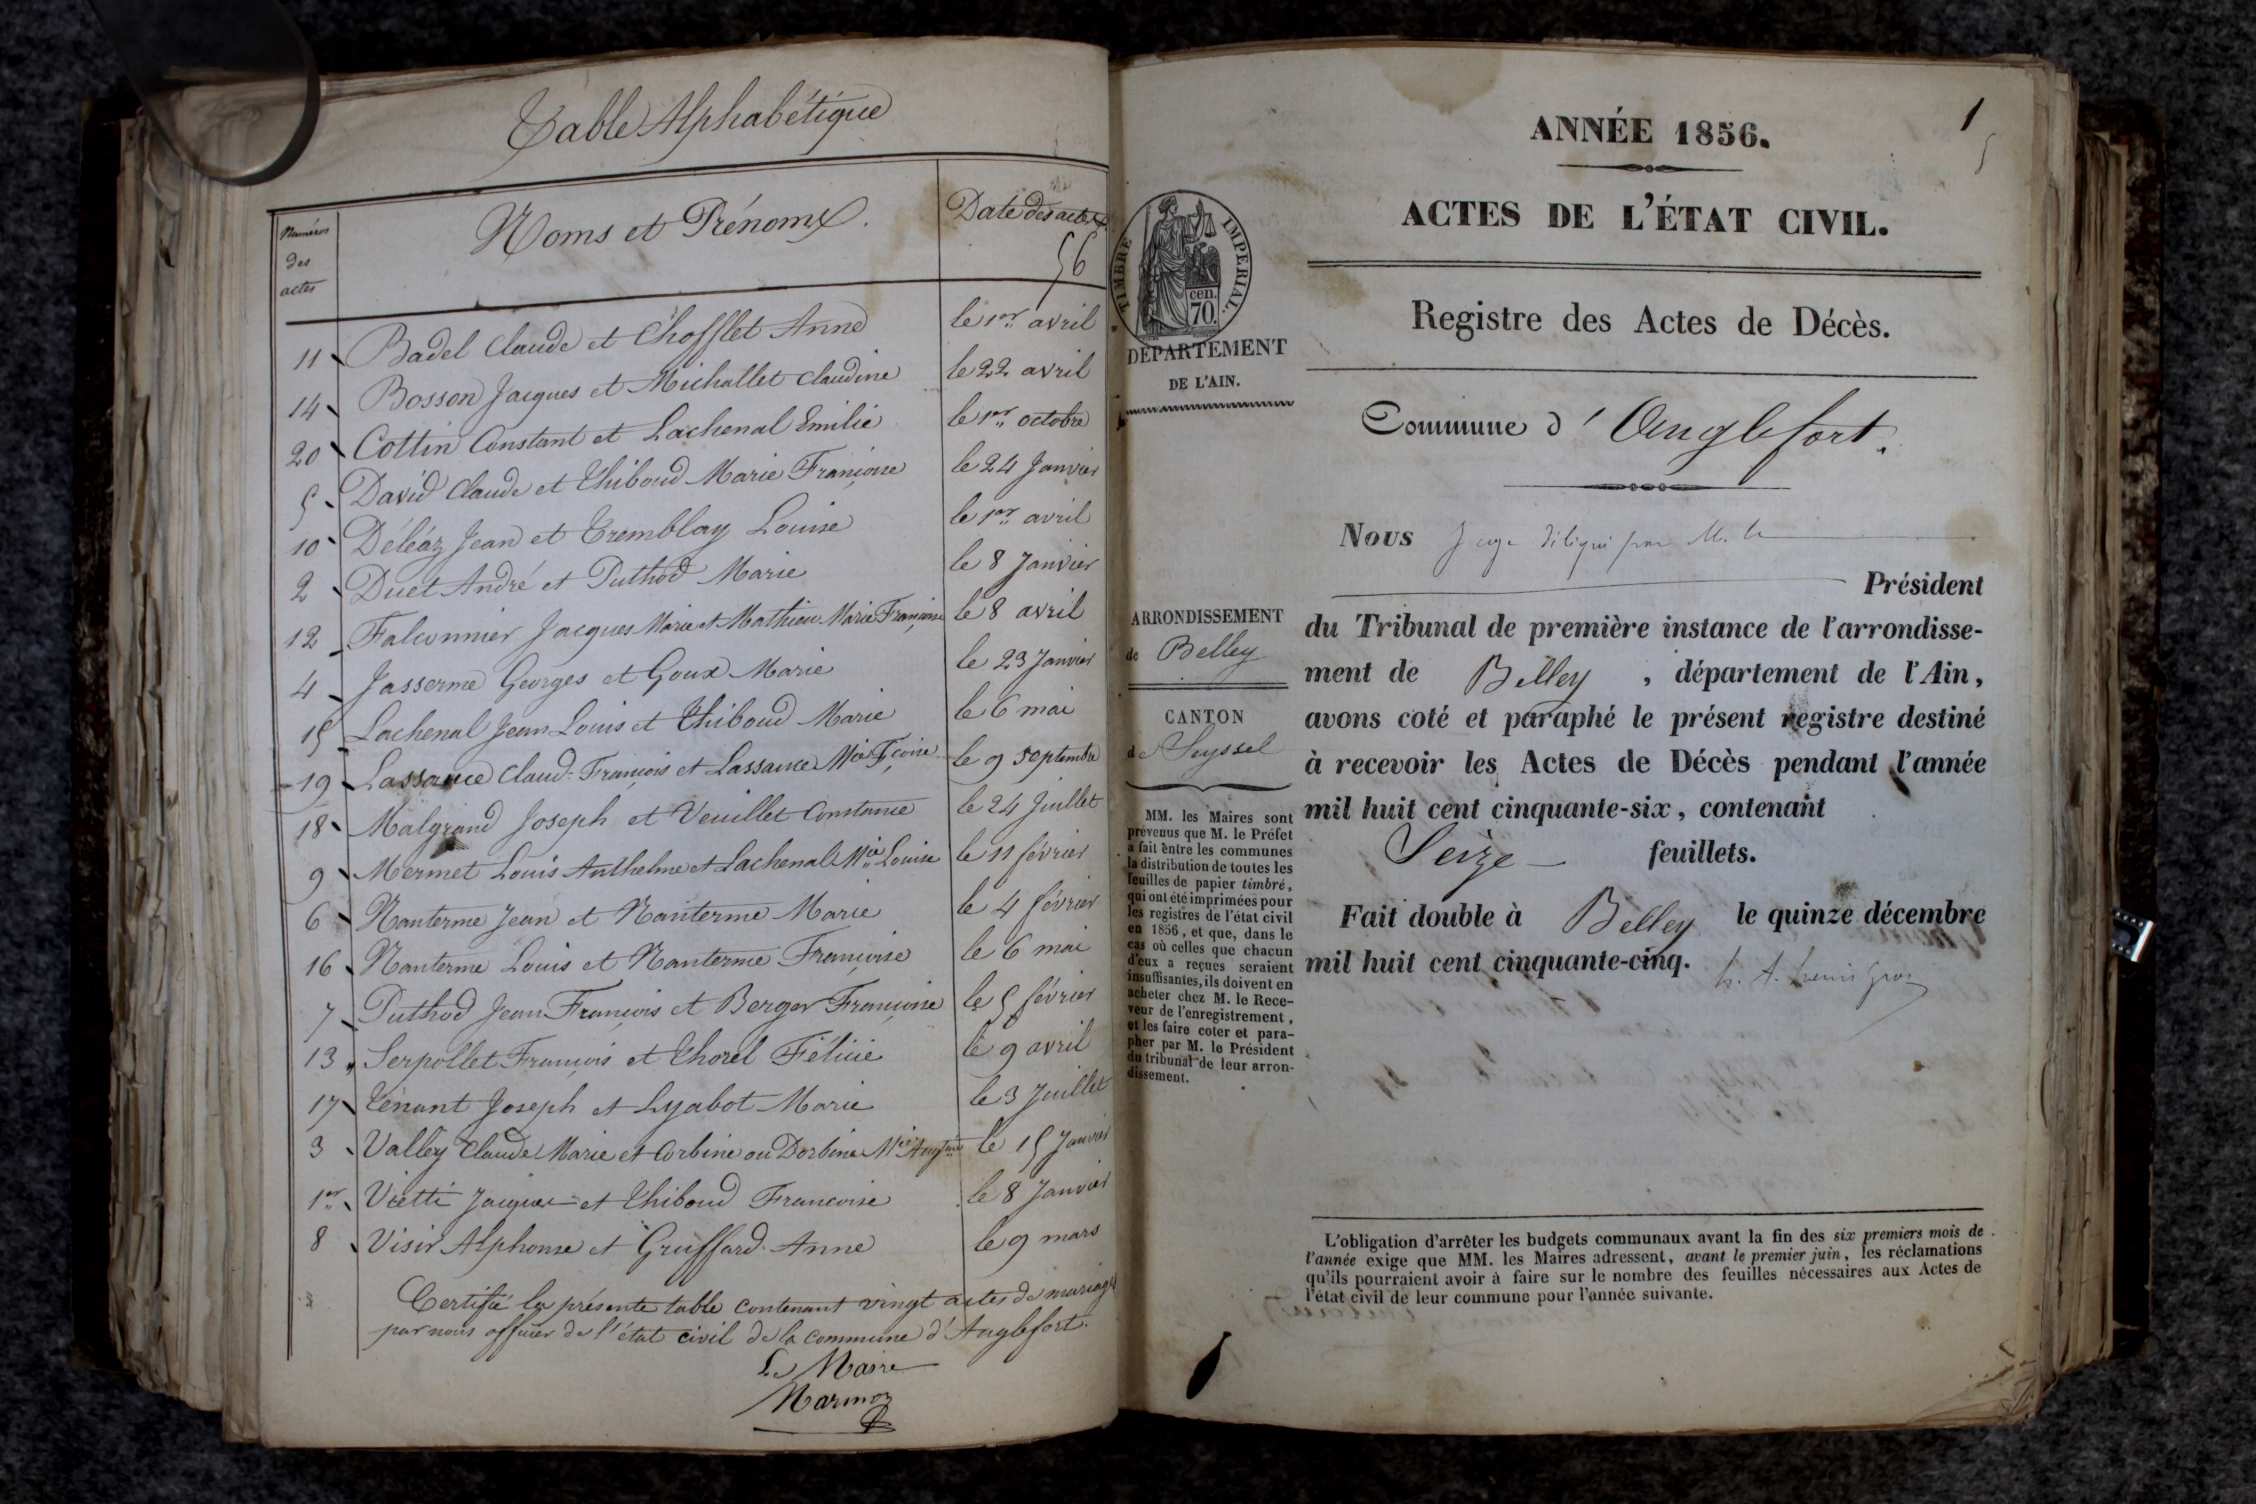 Table Alphabétique
Numéros des actes
Noms et Prénoms.
Date des actes
56
11 Badel Claude et Chofflet Anne le 1er avril
14 Bosson Jacques et Michallet Claudine le 22 avril
20 Cottin Constant et Lachenal Emilie le 1er octobre
5 David Claude et Thiboud Marie Françoise le 24 Janvier
10 Déléaz Jean et Tremblay Louise le 1er avril
2 Duet André et Puthod Marie le 8 Janvier
12 Falconnier Jacques Marie et Mathieu Marie Françoise le 8 avril
4 Jasserme Georges et Goux Marie le 23 Janvier
15 Lachenal Jean Louis et Thiboud Marie le 6 mai
19 Lassauce Claud-François et Lassauce Mie Fçoise le 9 septembre
18 Malgrand Joseph et Veuillet Constance le 24 Juillet
9 Mermet Louis Anthelme et Lachenal Mie Louise le 11 février
6 Nanterme Jean et Nanterme Marie le 4 février
16 Nanterme Louis et Nanterme Françoise le 6 mai
7 Puthod Jean François et Berger Françoise le 5 février
13 Serpollet François et Thorel Félicie le 9 avril
17 Tenant Joseph et Lyabot Marie le 3 Juillet
3 Valley Claude Marie et Corbine ou Dorbine Mie le 15 Janvier
1er Vietti Jacques et Thiboud Francoise le 8 Janvier
8 Visir Alphonse et Gruffard Anne le 9 mars
Certifié la présente table contenant vingt actes de mariage
par nous officier de l'état civil de la commune d'Anglefort.
Le Maire
Marmoz
1
ANNÉE 1856.
ACTES DE L'ÉTAT CIVIL.
TIMBRE IMPERIAL.
cen. 70.
DÉPARTEMENT
DE L'AIN.
Registre des Actes de Décès.
Commune d'Anglefort.
Nous Juge délégué par M. le
Président
ARRONDISSEMENT
de Belley
CANTON
de Seyssel
MM. les Maires sont
prévenus que M. le Préfet
a fait entre les communes
la distribution de toutes les
feuilles de papier timbré,
qui ont été imprimées pour
les registres de l'état civil
en 1856, et que, dans le
cas où celles que chacun
d'eux a reçues seraient
insuffisantes, ils doivent en
acheter chez M. le Rece-
veur de l'enregistrement,
et les faire coter et para-
pher par M. le Président
du tribunal de leur arron-
dissement.
du Tribunal de première instance de l'arrondisse-
ment de Belley, département de l'Ain,
avons coté et paraphé le présent registre destiné
à recevoir les Actes de Décès pendant l'année
mil huit cent cinquante-six, contenant
Seize feuillets.
Fait double à Belley le quinze décembre
mil huit cent cinquante-cinq.
L'obligation d'arrêter les budgets communaux avant la fin des six premiers mois de
l'année exige que MM. les Maires adressent, avant le premier juin, les réclamations
qu'ils pourraient avoir à faire sur le nombre des feuilles nécessaires aux Actes de
l'état civil de leur commune pour l'année suivante.